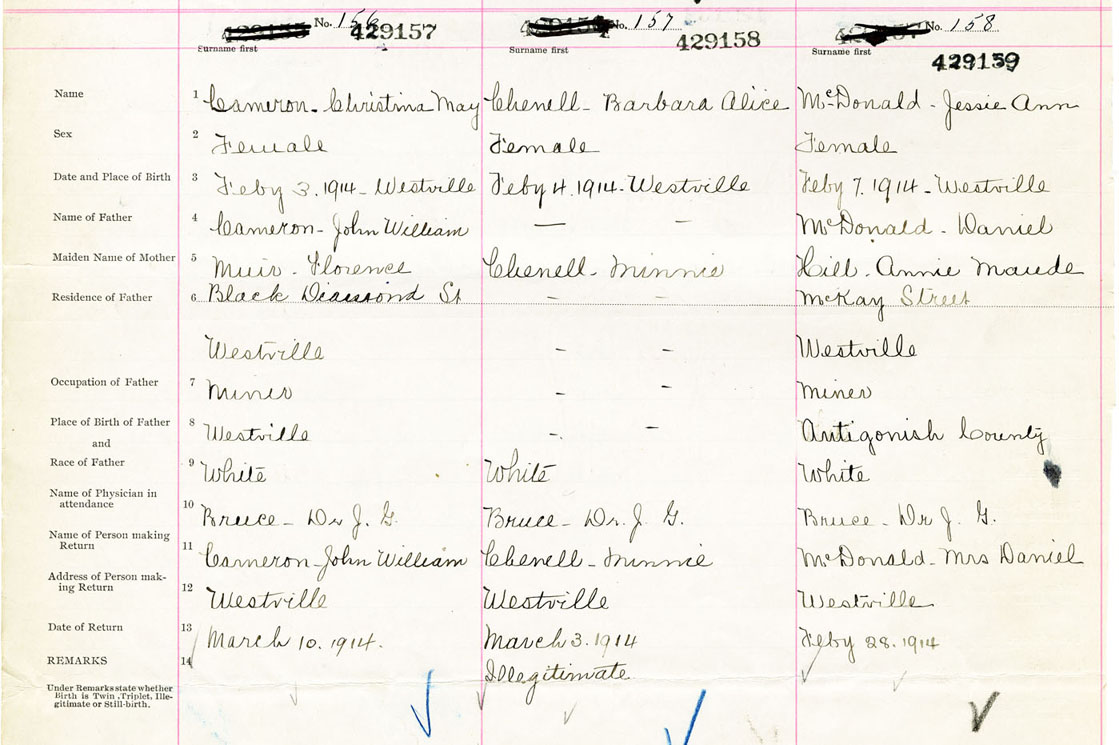 No. 156 No. 157 No. 158
429157 429158 429159
Surname first Surname first Surname first
Name 1 Cameron - Christina May Chenell - Barbara Alice McDonald - Jessie Ann
Sex 2 Female Female Female
Date and Place of Birth 3 Feby 3. 1914 - Westville Feby 4. 1914 - Westville Feby 7. 1914 - Westville
Name of Father 4 Cameron - John William — - McDonald - Daniel
Maiden Name of Mother 5 Muir - Florence Chenell - Minnie Hill - Annie Maude
Residence of Father 6 Black Diamond St - - McKay Street
Westville - - Westville
Occupation of Father 7 Miner - - Miner
Place of Birth of Father 8 Westville - - Antigonish County
and
Race of Father 9 White White White
Name of Physician in
attendance 10 Bruce - Dr J. G. Bruce - Dr. J. G. Bruce - Dr J. G.
Name of Person making
Return 11 Cameron - John William Chenell - Minnie McDonald - Mrs Daniel
Address of Person mak-
ing Return 12 Westville Westville Westville
Date of Return 13 March 10. 1914. March 3. 1914 Feby 28. 1914
REMARKS 14 Illegitimate
Under Remarks state whether
Birth is Twin, Triplet, Ille-
gitimate or Still-birth.